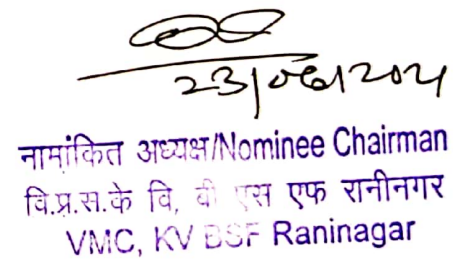 23/06/2021
नामांकित अध्यक्ष/Nominee Chairman
वि.प्र.स.के वि, बी एस एफ रानीनगर
VMC, KV BSF Raninagar